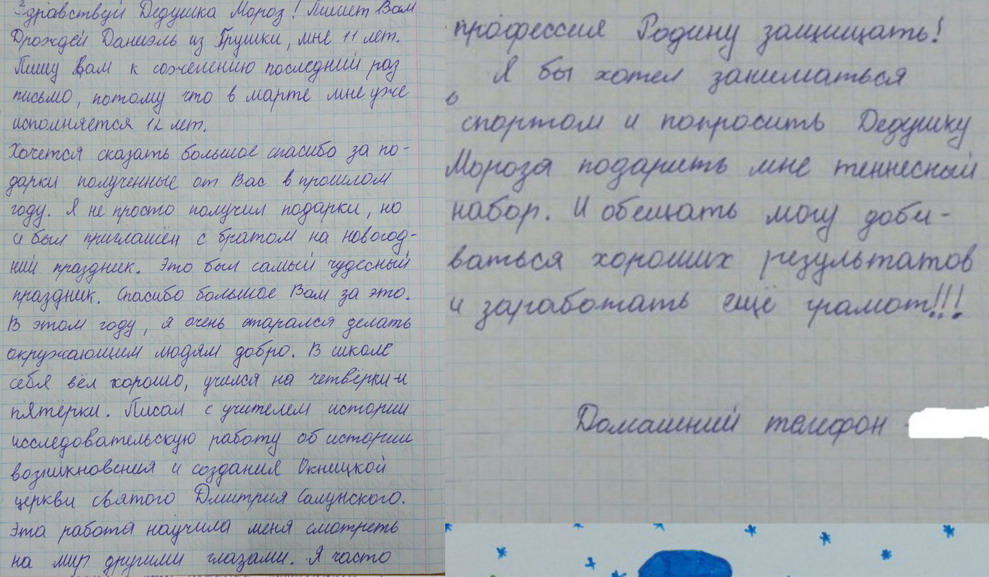 Здравствуй Дедушка Мороз! Пишет Вам
Дрождей Даниэль из Грушки, мне 11 лет.
Пишу Вам к сожелению последний раз
письмо, потому что в марте мне уже
исполняется 12 лет.
Хочется сказать большое спасибо за по-
дарки полученные от Вас в прошлом
году. Я не просто получил подарки, но
и был приглашен с братом на новогод-
ний праздник. Это был самый чудесный
праздник. Спасибо большое Вам за это.
В этом году, я очень старался делать
окружающим людям добро. В школе
себя вёл хорошо, учился на четвёрки и
пятёрки. Писал с учителем истории
исследовательскую работу об истории
возникновения и создания Окницкой
церкви святого Дмитрия Салунского.
Эта работа научила меня смотреть
на мир другими глазами. Я часто
профессия Родину защищать!
Я бы хотел заниматься
спортом и попросить Дедушку
Мороза подарить мне теннесный
набор. И обещать могу доби-
ваться хороших результатов
и заработать ещё грамот!!!
Домашний телефон -